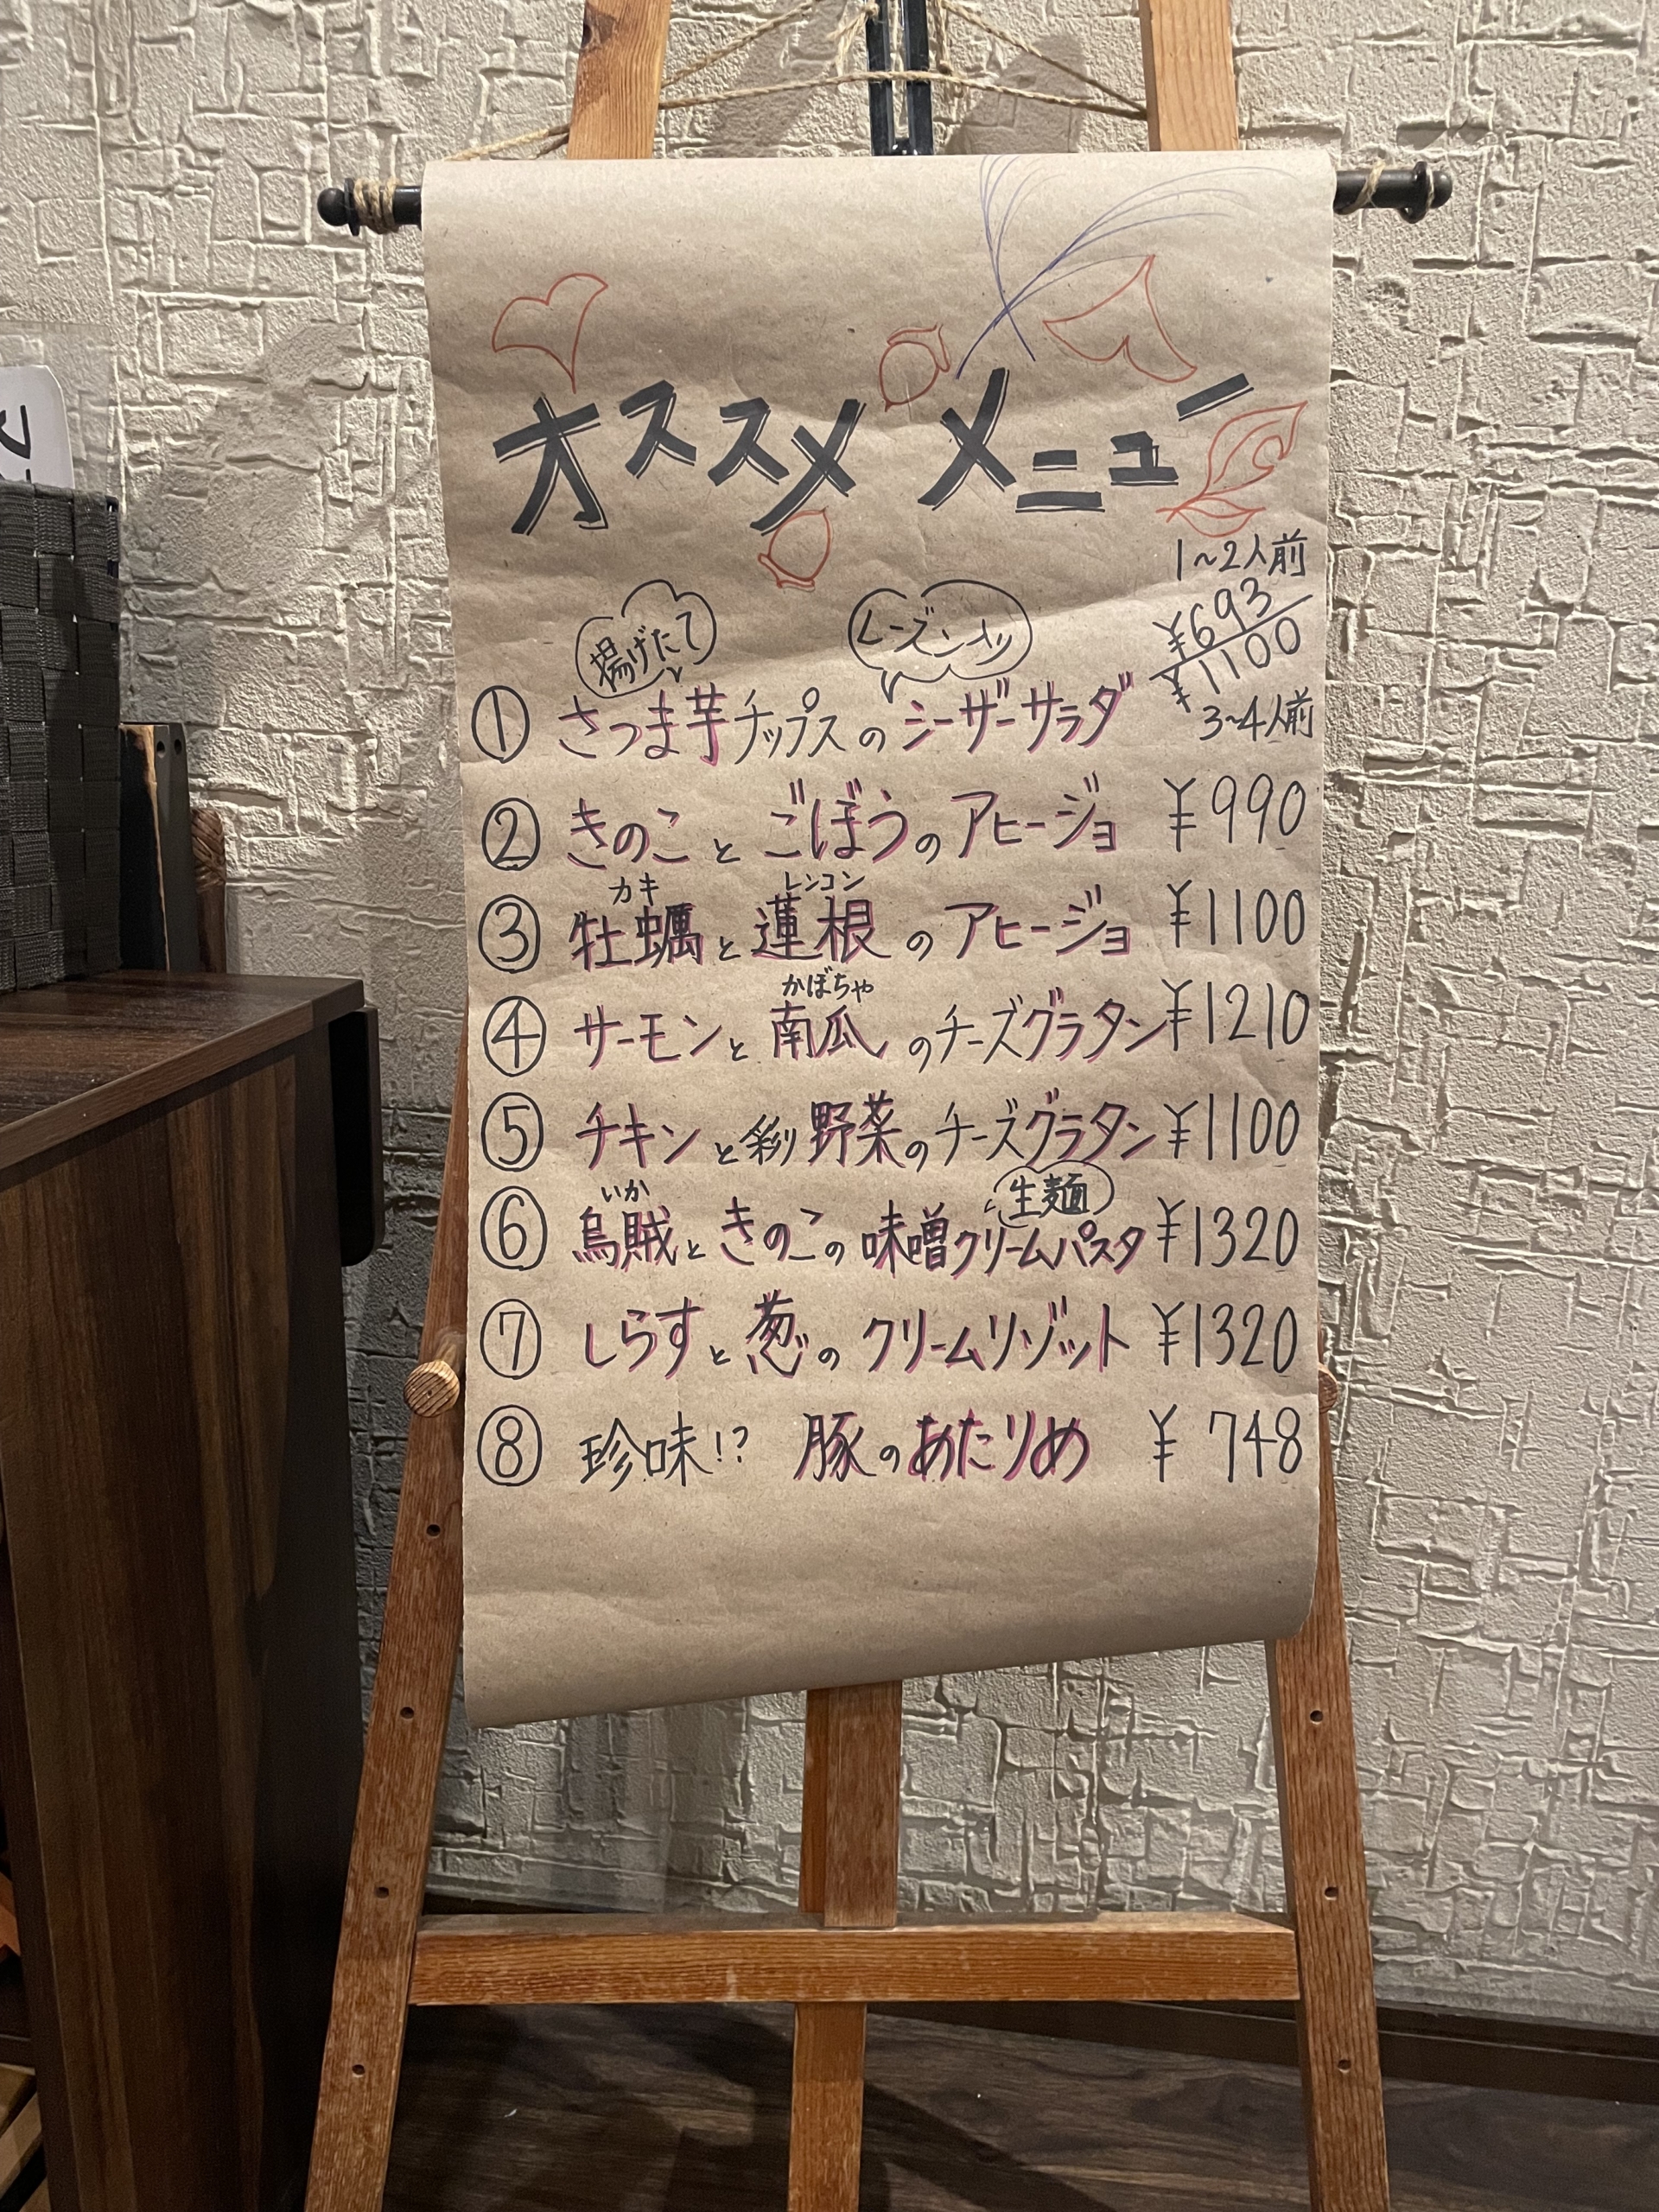 オススメ メニュー
1~2人前
¥693
¥1100
3~4人前
揚げたて
レーズンナッツ
① さつま芋チップスのシーザーサラダ
② きのことごぼうのアヒージョ ¥990
カキ レンコン
③ 牡蠣と蓮根のアヒージョ ¥1100
かぼちゃ
④ サーモンと南瓜のチーズグラタン ¥1210
⑤ チキンと彩り野菜のチーズグラタン ¥1100
いか 生麺
⑥ 烏賊ときのこの味噌クリームパスタ ¥1320
⑦ しらすと葱のクリームリゾット ¥1320
⑧ 珍味!? 豚のあたりめ ¥748